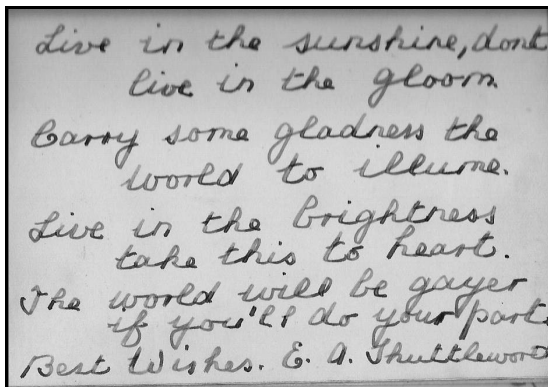 Live in the sunshine, dont
live in the gloom.
Carry some gladness the
world to illume.
Live in the brightness
take this to heart.
The world will be gayer
if you'll do your part.
Best Wishes. E. A.